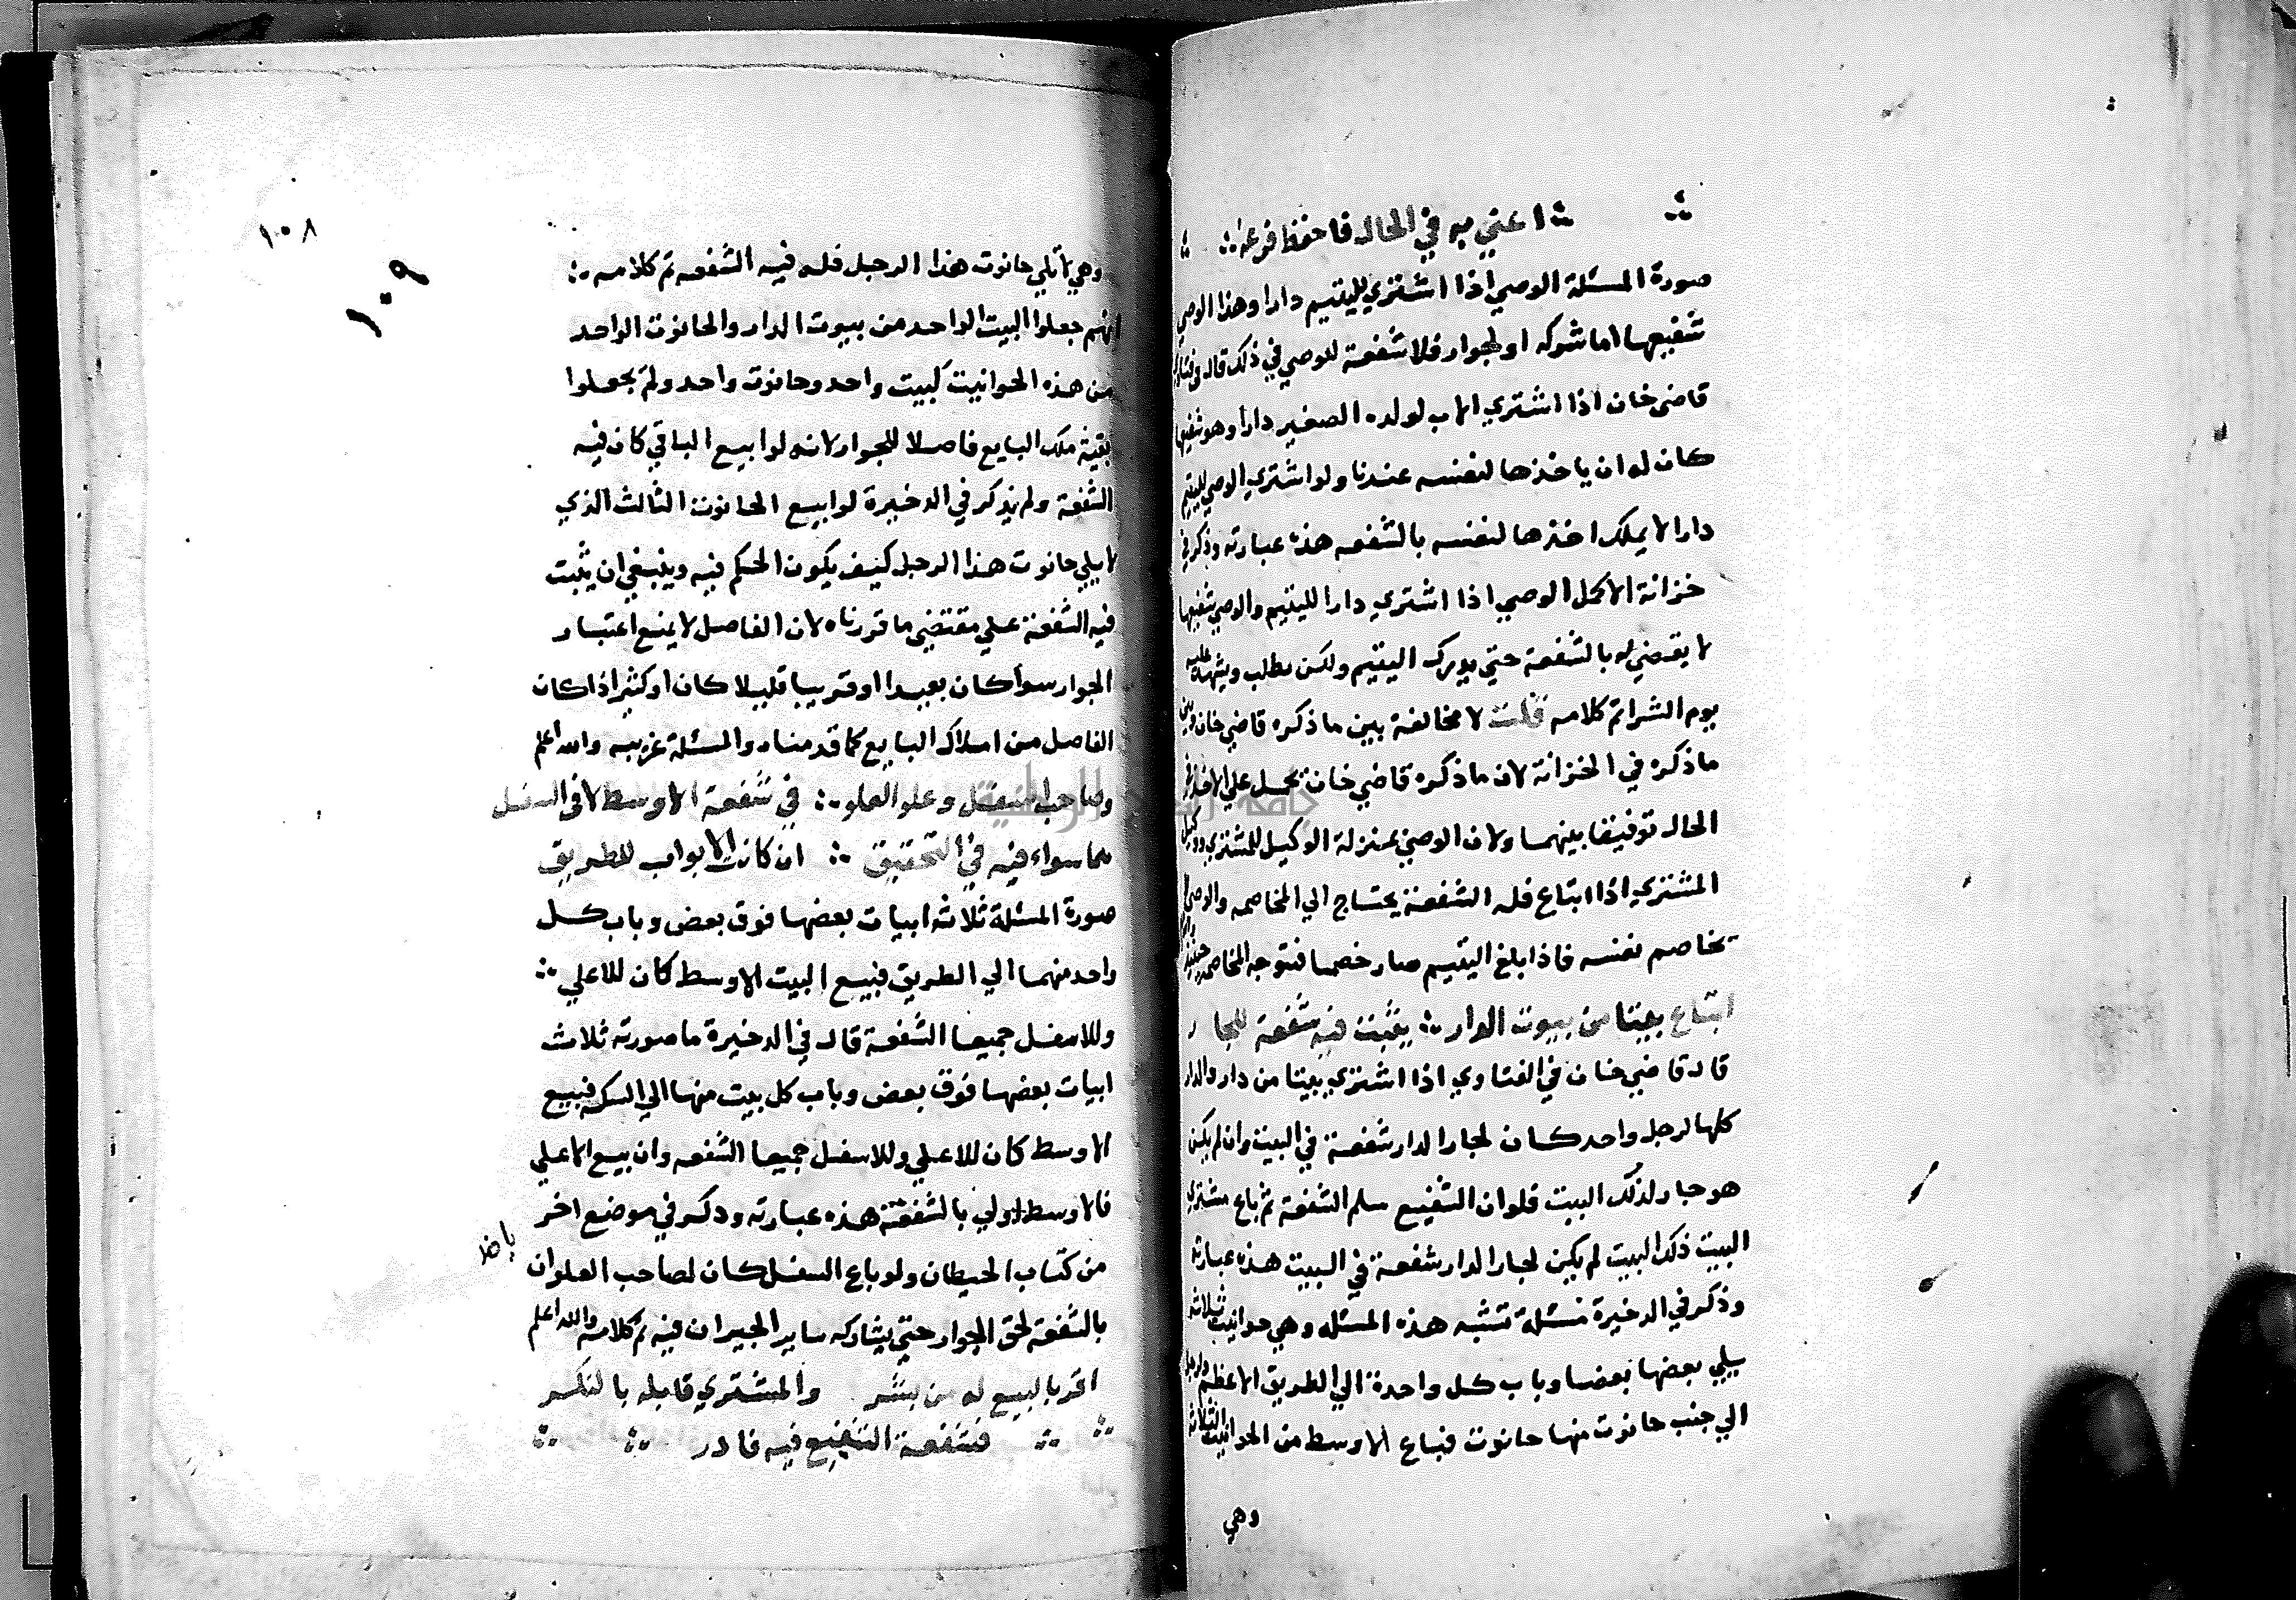 اعني به في الحال فاحفظ فرعه
صورة المسئلة الوصي اذا اشتري لليتيم دارا وهذا الوصي
شفيعها اما شركه او لجوار فلا شفعة للوصي في ذلك قال في فتاوي
قاضي خان اذا اشتري الاب لولده الصغير دارا وهو شفيعها
كان له ان ياخذها لنفسه عندنا ولو اشتري الوصي لليتيم
دارا لا يملك اخذها لنفسه بالشفعه هذه عبارته وذكر في
خزانة الاكمل الوصي اذا اشتري دارا لليتيم والوصي شفيعها
لا يقضي له بالشفعة حتي يدرك اليتيم ولكن يطلب ويشهد عليه
يوم الشرا تم كلامه قلت لا مخالفة بين ما ذكره قاضي خان وبين
ما ذكره في الخزانة لان ما ذكره قاضي خان يحمل علي الاخذ في
الحال توفيقا بينهما ولان الوصي بمنزلة الوكيل للمشتري ووكيل
المشتري اذا ابتاع فله الشفعة يحتاج الي المخاصمه والوصي
يخاصم نفسه فاذا بلغ اليتيم صار خصما فتوجه المخاصمه حينئذ
ابتاع بيتا من بيوت الدار يثبت فيه شفعة للجار
قال قاضي خان في الفتاوي اذا اشتري بيتا من دار والدار
كلها لرجل واحد كان لجار الدار شفعة في البيت وان لم يكن
هو جار لذلك البيت فلو ان الشفيع سلم الشفعة ثم باع مشتري
البيت ذلك البيت لم يكن لجار الدار شفعة في البيت هذه عبارته
وذكر في الدخيرة مسئلة تشبه هذه المسئله وهي حوانيت ثلاثه
يلي بعضها بعضا وباب كل واحدة الي الطريق الاعظم ولرجل
الي جنب حانوت منها حانوت فباع الاوسط من الحوانيت الثلاثه
وهي
١٠٨
١٠٩
وهي لا تلي حانوت هذا الرجل فله فيه الشفعه تم كلامه
انهم جعلوا البيت الواحد من بيوت الدار والحانوت الواحد
من هذه الحوانيت كبيت واحد وحانوت واحد ولم يجعلوا
بقية ملك البايع فاصلا للجوار لانه لو ابيع الباقي كان فيه
الشفعة ولم يذكر في الدخيرة لو ابيع الحانوت الثالث الذي
لا يلي حانوت هذا الرجل كيف يكون الحكم فيه وينبغي ان يثبت
فيه الشفعة علي مقتضي ما قررناه لان الفاصل لا يمنع اعتبار
الجوار سوا كان بعيدا او قريبا قليلا كان او كثيرا اذا كان
الفاصل من املاك البايع كما قدمناه والمسئلة غريبه والله اعلم
وصاحب سفل وعلو العلو في شفعة الاوسط لا في السفل
هما سواء فيه في التحقيق ان كانت الابواب للطريق
صورة المسئلة ثلاثه ابيات بعضها فوق بعض وباب كل
واحد منهما الي الطريق فبيع البيت الاوسط كان للاعلي
وللاسفل جميعا الشفعة قال في الدخيرة ما صورته ثلاث
ابيات بعضها فوق بعض وباب كل بيت منها الي السكه فبيع
الاوسط كان للاعلي وللاسفل جميعا الشفعه وان بيع الاعلي
فالاوسط اولي بالشفعة هذه عبارته ودكر في موضع اخر
من كتاب الحيطان ولو باع السفل كان لصاحب العلو ان
ياخذ
بالشفعة لحق الجوار حتي يشاركه ساير الجيران فيه تم كلامه والله اعلم
اقر بالبيع له من بشر والمشتري قابله بالنكر
فشفعة الشفيع فيه قادر
جامعة الوطنية